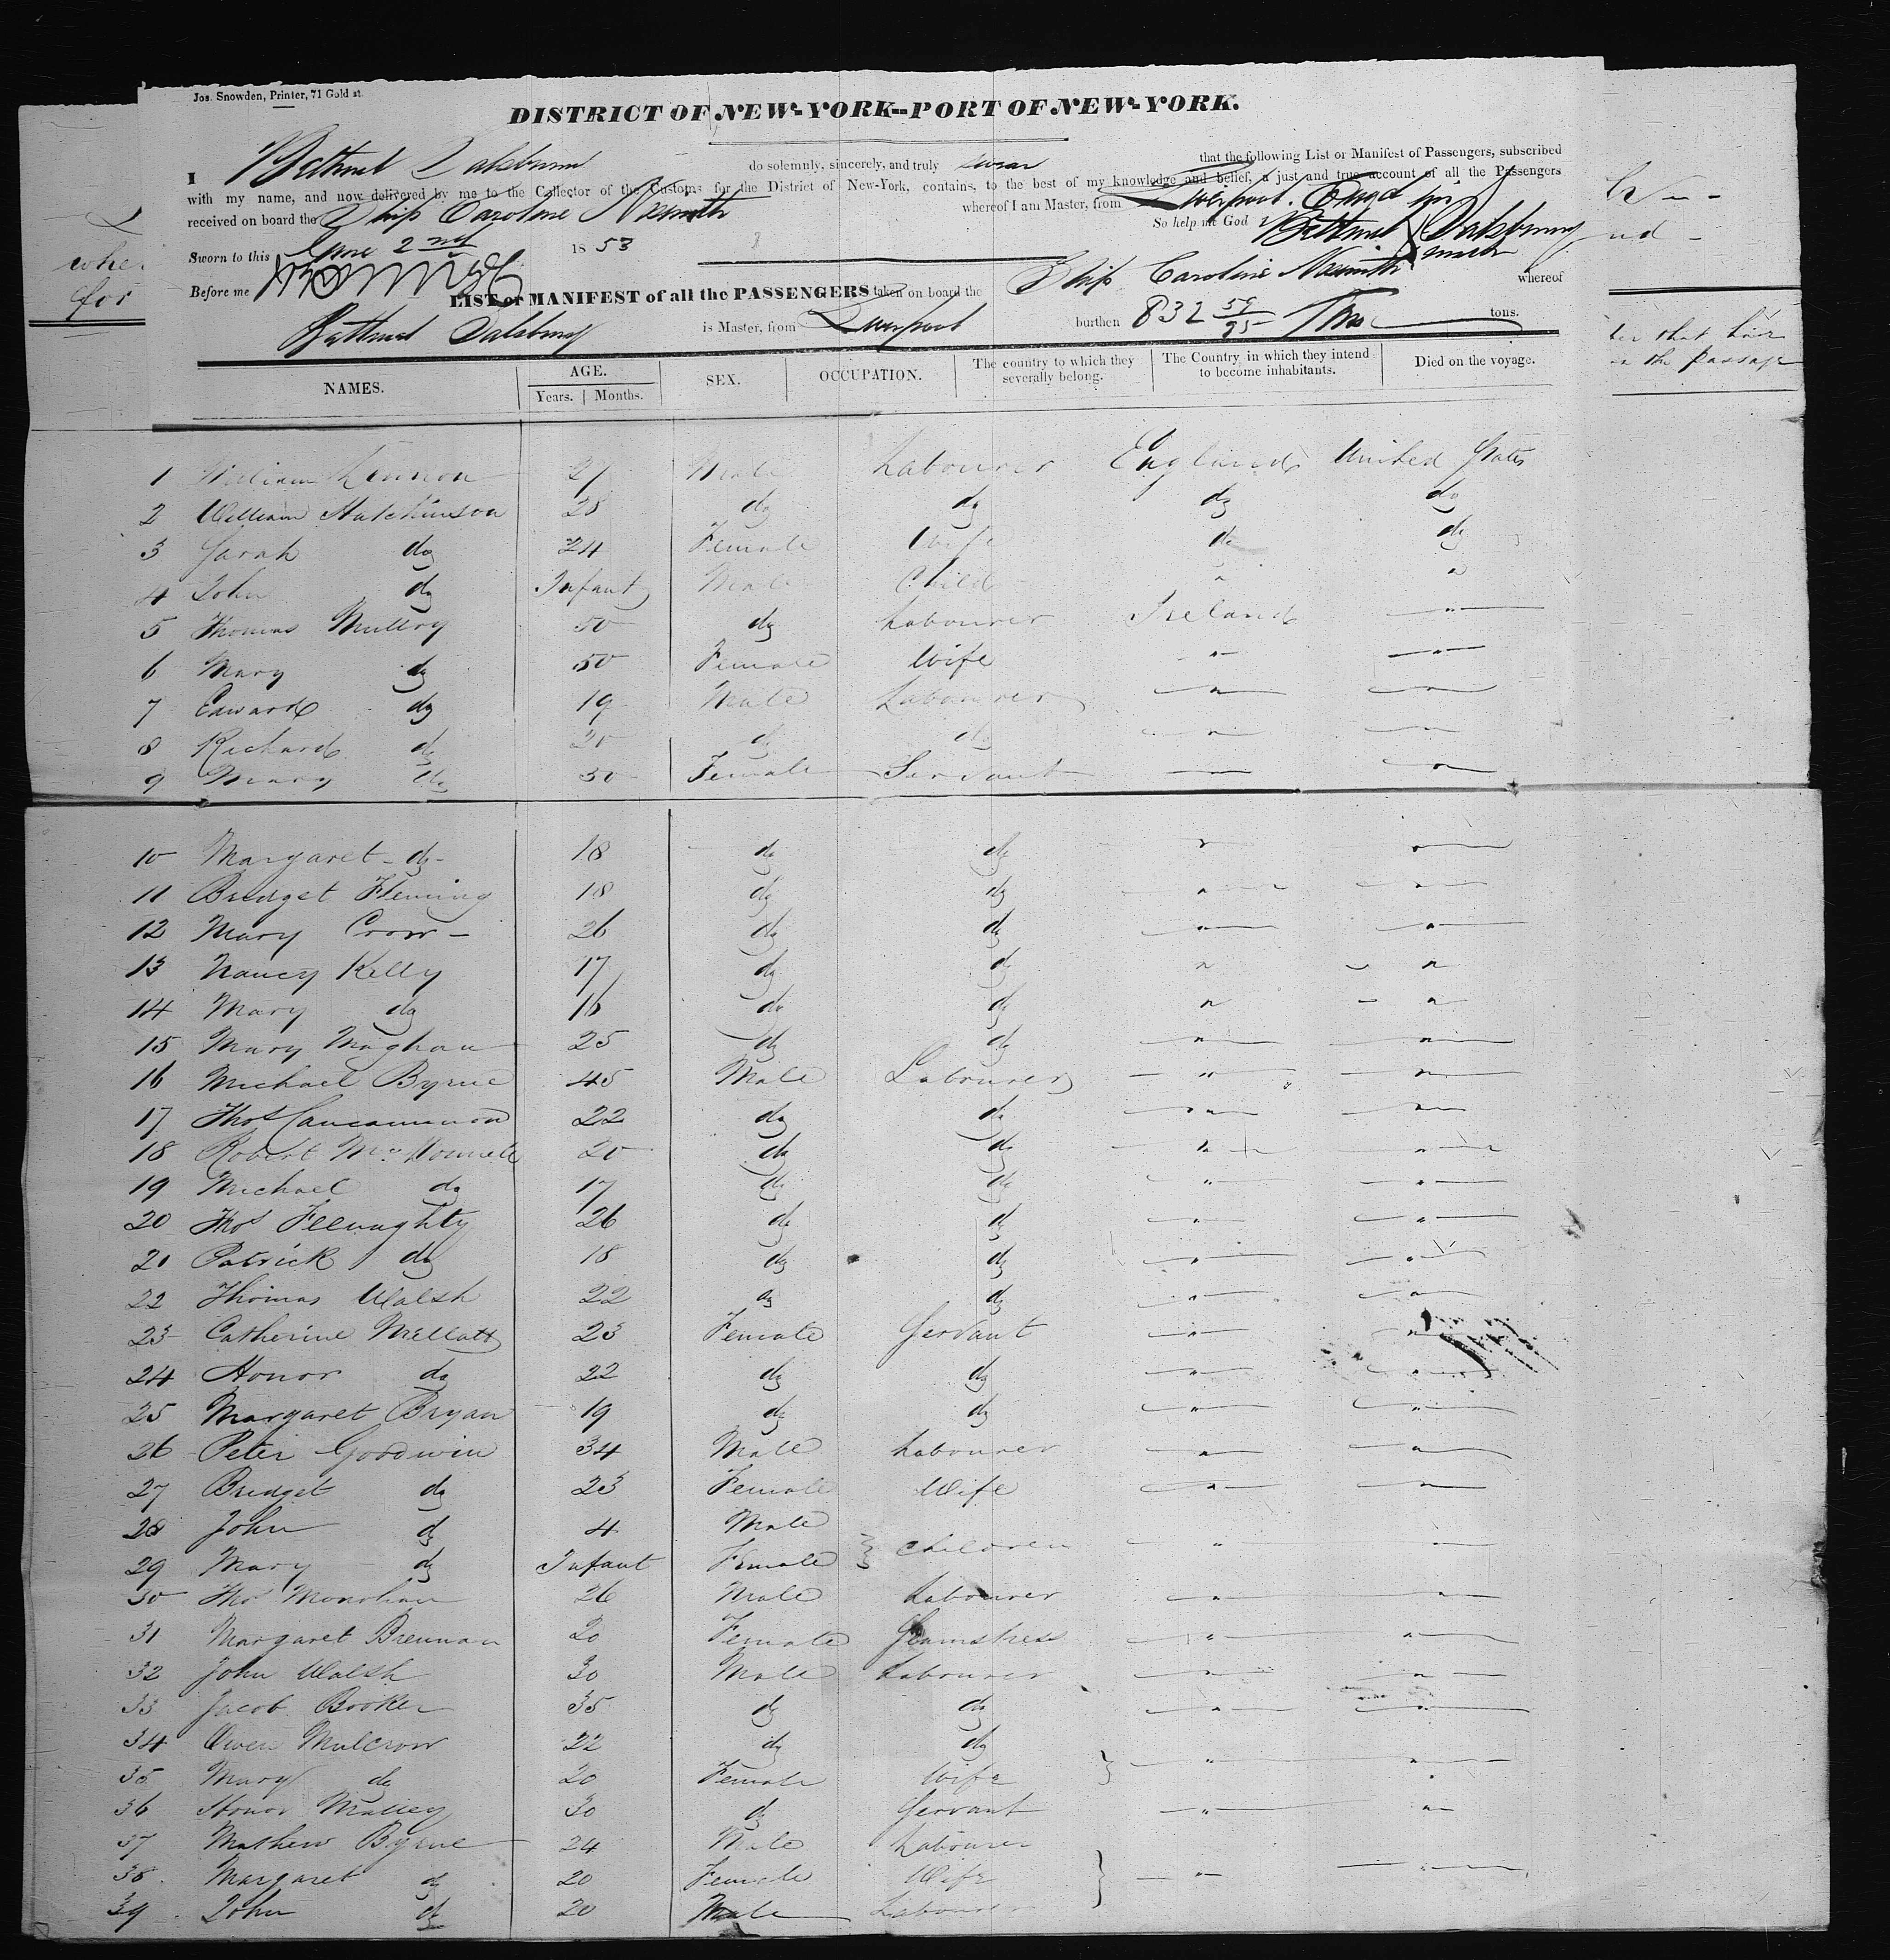 Jos. Snowden, Printer, 71 Gold st.
DISTRICT OF NEW-YORK--PORT OF NEW-YORK.
I do solemnly, sincerely, and truly swear that the following List or Manifest of Passengers, subscribed
with my name, and now delivered by me to the Collector of the Customs for the District of New-York, contains, to the best of my knowledge and belief, a just and true account of all the Passengers
received on board the Ship Caroline Nesmith whereof I am Master, from Liverpool.
So help me God
Sworn to this June 2nd 1853
Before me
LIST or MANIFEST of all the PASSENGERS taken on board the Ship Caroline Nesmith whereof
is Master, from Liverpool burthen 832 tons.
NAMES. AGE. Years. Months. SEX. OCCUPATION. The country to which they severally belong. The Country in which they intend to become inhabitants. Died on the voyage.
1 William 27 Male Labourer England United States
2 William Hutchinson 28 do do do do
3 Sarah do 24 Female Wife do do
4 John do Infant Male Child " "
5 Thomas Mulloy 50 do Labourer Ireland "
6 Mary do 50 Female Wife " "
7 Edward do 19 Male Labourer " "
8 Richard do 20 do do " "
9 Mary do 30 Female Servant "
10 Margaret do 18 do do " "
11 Bridget Fleming 18 do do " "
12 Mary Crow 26 do do " "
13 Nancy Kelly 17 do do " "
14 Mary do 16 do do " "
15 Mary Maghan 25 do do " "
16 Michael Byrne 45 Male Labourer " "
17 Thos 22 do do " "
18 Robert McDonnell 20 do do " "
19 Michael do 17 do do " "
20 Thos Flenaghty 26 do do " "
21 Patrick do 18 do do " "
22 Thomas Walsh 22 do do " "
23 Catherine Mellatt 23 Female Servant " "
24 Honor do 22 do do " "
25 Margaret Bryan 19 do do " "
26 Peter Goodwin 34 Male Labourer " "
27 Bridget do 23 Female Wife " "
28 John do 4 Male
29 Mary do Infant Female } Children " "
30 Thos Monohan 26 Male Labourer " "
31 Margaret Brennan 20 Female Seamstress " "
32 John Walsh 30 Male Labourer " "
33 Jacob Booker 35 do do " "
34 Owen Mulcrow 22 do do " "
35 Mary do 20 Female Wife }
36 Honor Malley 30 do Servant " "
37 Mathew Byrne 24 Male Labourer
38 Margaret do 20 Female Wife } " "
39 John do 20 Male Labourer